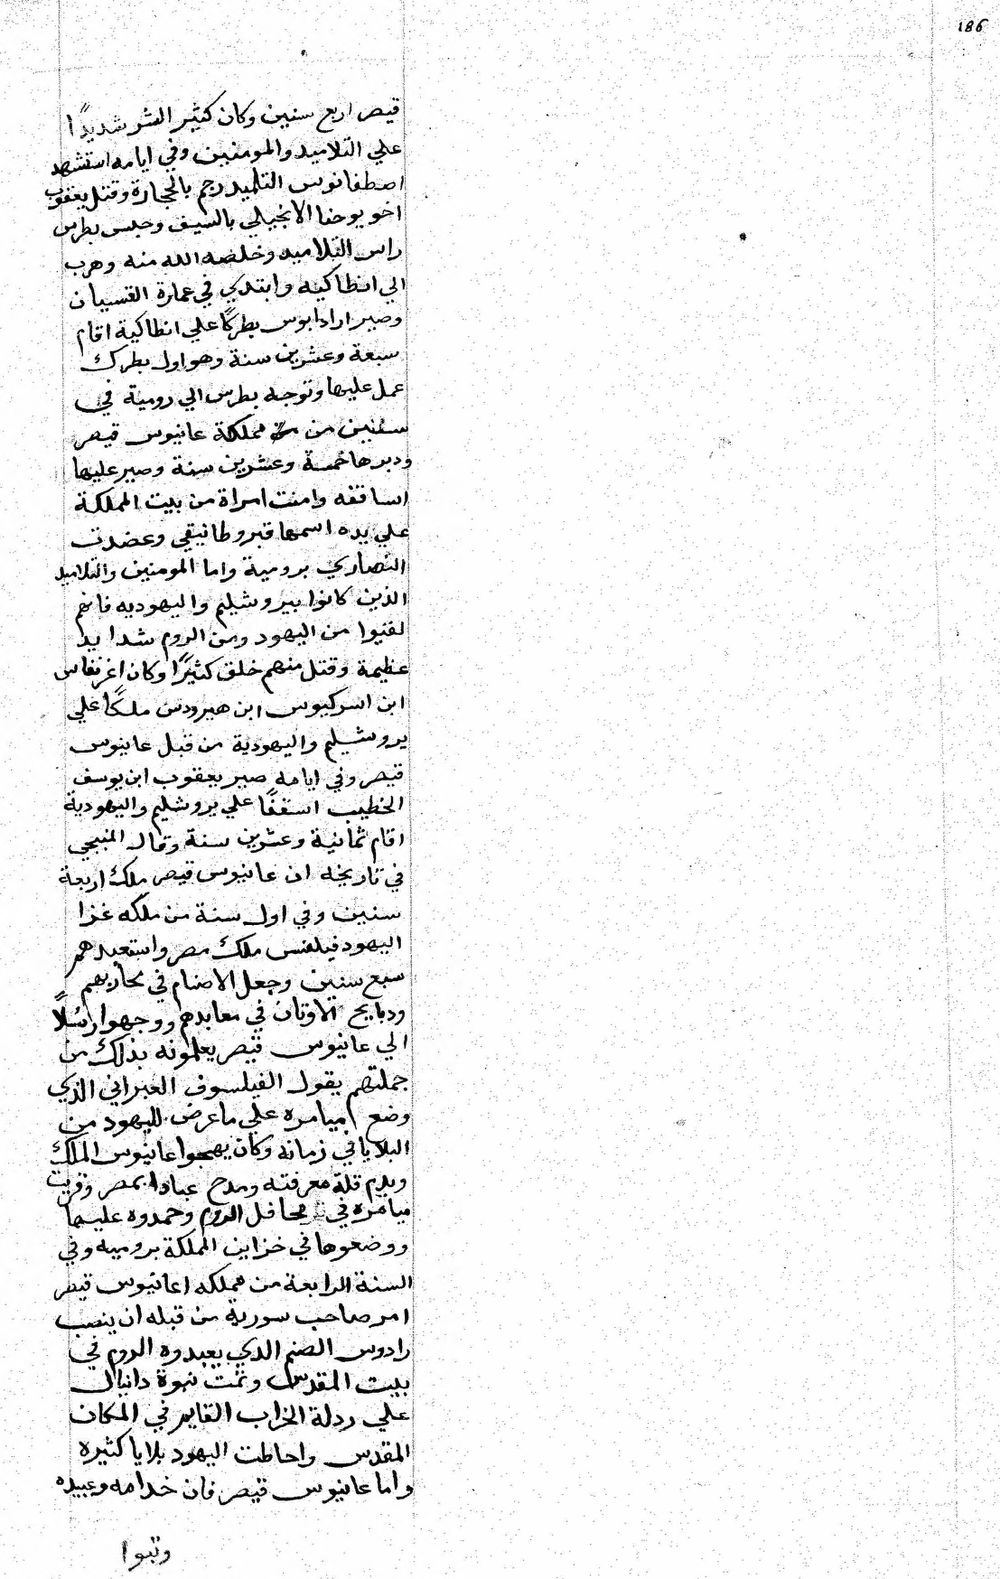 186
قيصر اربع سنين وكان كثير الشر شديدًا
علي التلاميد والمومنين وفي ايامه استشهد
اصطفانوس التلميد رجم بالحجارة وقتل يعقوب
اخو يوحنا الانجيلي بالسيف وحبس بطرس
راس التلاميد وخلصه الله منه وهرب
الي انطاكيه وابتدي في عمارة القسيان
وصير ارادابوس بطركًا علي انطاكية اقام
سبعة وعشرين سنة وهو اول بطرك
عمل عليها وتوجه بطرس الي رومية في
سنين من مملكة عانيوس قيصر
ودبرها خمسة وعشرين سنة وصير عليها
اساقفه وامنت امراة من بيت المملكة
علي يده اسمها قبروطانيقي وعضدت
النصاري برومية واما المومنين والتلاميد
الذين كانوا بيروشليم واليهوديه فانهم
لقيوا من اليهود ومن الروم شدايد
عظيمة وقتل منهم خلق كثيرًا وكان اغرنفاس
ابن اسركيوس ابن هيرودس ملكًا علي
يروشليم واليهودية من قبل عانيوس
قيصر وفي ايامه صير يعقوب ابن يوسف
الخطيب اسقفًا علي يروشليم واليهودية
اقام ثمانية وعشرين سنة وقال المنبجي
في تاريخه ان عانيوس قيصر ملك اربعة
سنين وفي اول سنة من ملكه غزا
اليهود فيلفس ملك مصر واستعبدهم
سبع سنين وجعل الاصنام في محاربهم
ودبايح الاوتان في معابدهم ووجهوا رسُلًا
الي عانيوس قيصر يعلمونه بذلك من
جملتهم يقول الفيلسوف العبراني الذي
وضع ميامره علي ما عرض لليهود من
البلايا في زمانه وكان يهجوا عانيوس الملك
ويدم قلة معرفته ومدح عباد بمصر وقريت
ميامره في محافل الروم وحمدوه عليها
ووضعوها في خزاين المملكة بروميه وفي
السنة الرابعة من مملكه اعانيوس قيصر
امر صاحب سورية من قبله ان ينصب
رادوس الصنم الدي يعبدوه الروم في
بيت المقدس وتمت نبوة دانيال
علي ردلة الخراب القايم في المكان
المقدس واحاطت اليهود بلايا كثيره
واما عانيوس قيصر فان خدامه وعبيده
وتبوا